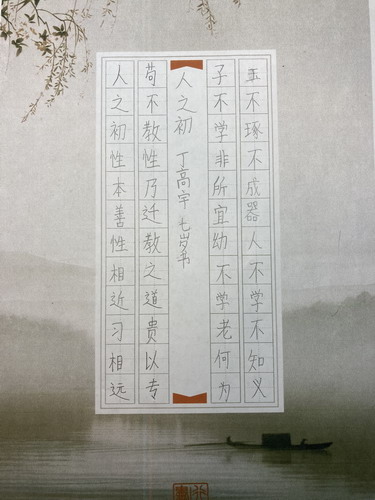 人之初性本善性相近习相远
苟不教性乃迁教之道贵以专
人之初 丁高宇 七岁书
子不学非所宜幼不学老何为
玉不琢不成器人不学不知义